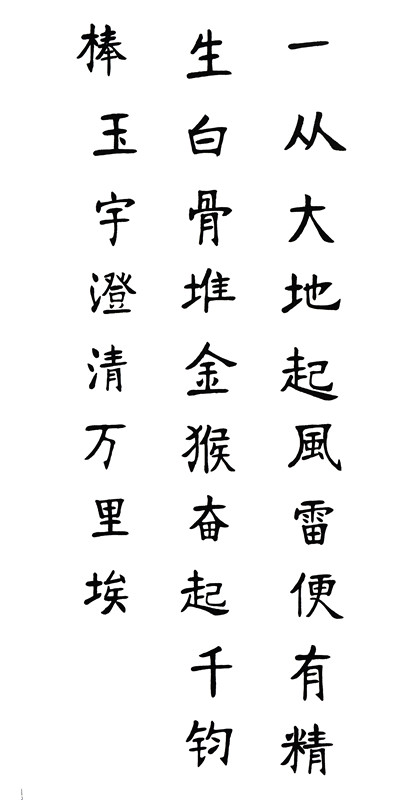 一从大地起風雷便有精
生白骨堆金猴奋起千钧
棒玉宇澄清万里埃